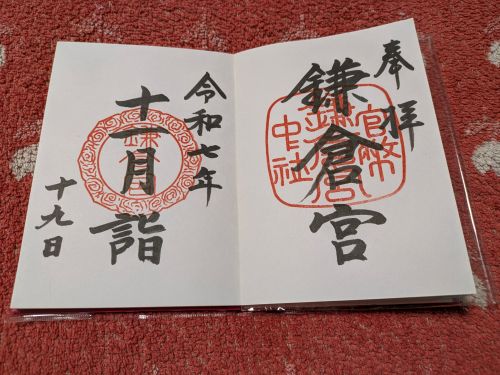 奉拝
鎌倉宮
官幣
中社
鎌倉宮
令和七年
十一月詣
十九日
鎌倉宮